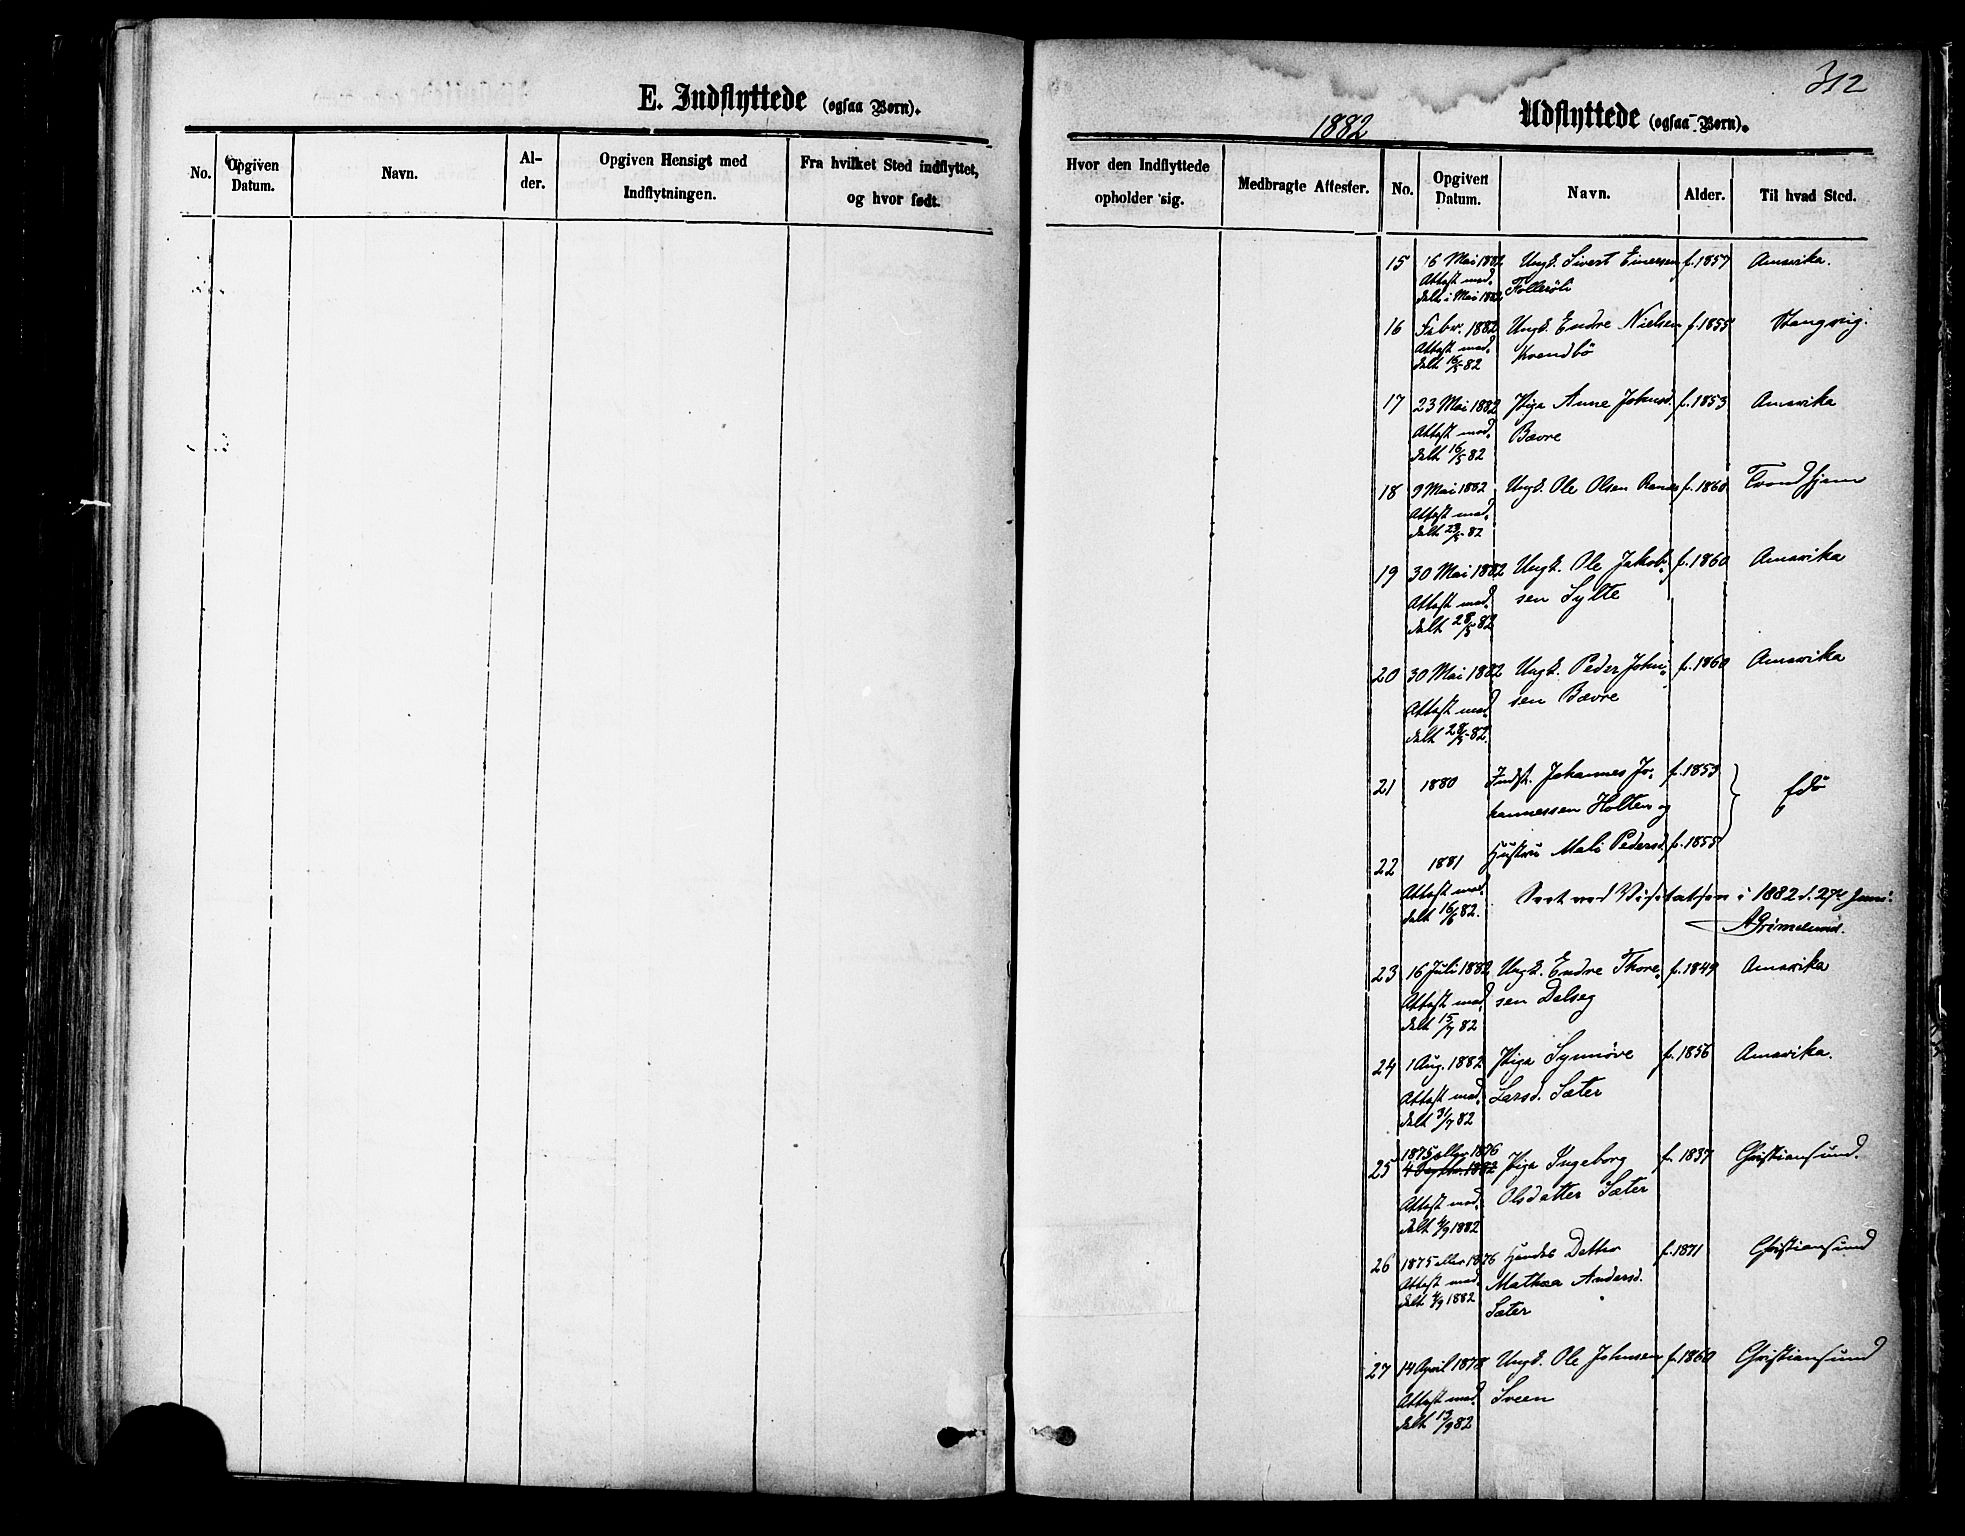 312
E. Indflyttede (ogsaa Børn).
No.
Opgiven
Datum.
Navn.
Al-
der.
Opgiven Hensigt med
Indflytningen.
Fra hvilket Sted indflyttet,
og hvor født.
1882
Udflyttede (ogsaa Børn).
Hvor den Indflyttede
opholder sig.
Medbragte Attester.
No.
Opgiven
Datum.
Navn.
Alder.
Til hvad Sted.
15 16 Mai 1882 Ungk. Sivert Einersen f. 1857 Amerika.
Attest med-
delt i Mai 1882 Follesöli
16 Febr. 1882 Ungk. Endre Nielsen f. 1855 Stangvig.
Attest med-
delt 16/5 82 Kvendbö
17 23 Mai 1882 Pige Anne Johnsd. f. 1853 Amerika
Attest med-
delt 16/5 82 Bævre
18 9 Mai 1882 Ungk. Ole Olsen Ranes f. 1860 Trondhjem
Attest med-
delt 23/5 82
19 30 Mai 1882 Ungk. Ole Jakob- f. 1860 Amerika
Attest med- sen Sylte
delt 28/5 82
20 30 Mai 1882 Ungk. Peder John- f. 1860 Amerika
Attest med- sen Bævre
delt 28/5 82.
21 1880 Indst. Johannes Jo- f. 1853
hannessen Holten og
Edö
22 1881 Hustru Mali Pedersd. f. 1855
Attest med-
delt 16/6 82.
Seet ved Visitatsen i 1882 d. 27de Juni.
AGrimelund.
23 16 Juli 1882 Ungk. Endre Thore- f. 1849 Amerika
Attest med- sen Dalseg
delt 15/7 82
24 1 Aug. 1882 Pige Synnöve f. 1856 Amerika.
Attest med- Larsd. Sæter
delt 31/7 82
1875 eller 1876
25 4 Septbr. 1882 Pige Ingeborg f. 1837 Christiansund.
Attest med- Olsdatter Sæter
delt 4/9 1882
26 1875 eller 1876 Hendes Datter f. 1871 Christiansund
Attest med- Mathea Andersd.
delt 4/9 1882 Sæter
27 14 April 1878 Ungk. Ole Johnsen f. 1860 Christiansund
Attest med- Sveen
delt 13/9 82